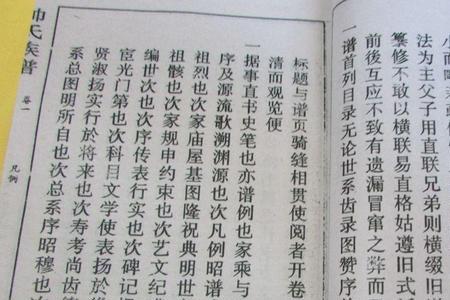 小而
法为主父子用直联兄弟则横缀旧
纂修不敢以横联易直格姑遵旧式
前後互应不致有遗漏冒窜之弊而
一谱首列目录无论世系齿录图赞序
标题与谱页骑缝相贯使阅者开卷
清而观览便
一据事直书史笔也亦谱例也家乘与
序及源流歌溯渊源也次凡例昭谱
祖烈也次家庙屋基图隆祝典明世
祖骸也次家规申约束也次艺文纪
编世次也次序传表行实也次碑记
宦光门第也次科目文学使表扬於
贤淑扬实行於将来也次寿考尚齿
系总图明所自也次总系序昭穆也次
帅氏族谱
卷一
凡例